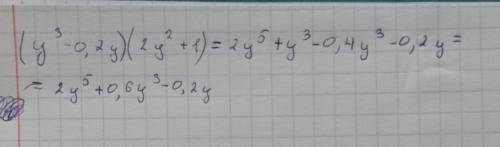 (y³-0,2y)(2y²+1)=2y⁵+y³-0,4y³-0,2y=
=2y⁵+0,6y³-0,2y